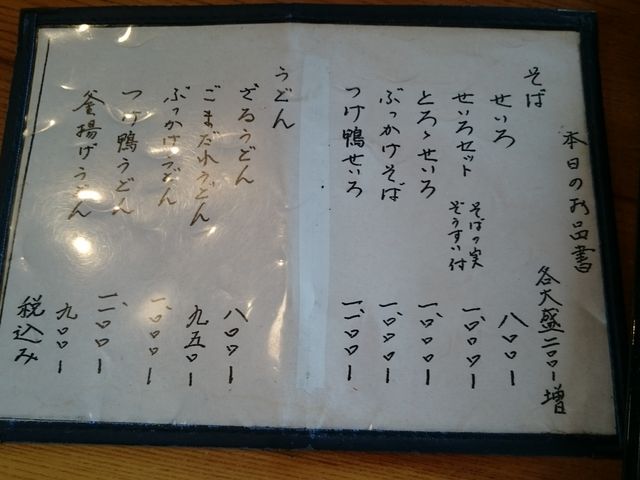 本日のお品書
各大盛二〇〇ー増
そば
せいろ 八〇〇ー
せいろセット そばの実ぞうすい付 一、〇〇〇ー
とろろせいろ 一、〇〇〇ー
ぶっかけそば 一、〇〇〇ー
つけ鴨せいろ 一、一〇〇ー
うどん
ざるうどん 八〇〇ー
ごまだれうどん 九五〇ー
ぶっかけうどん 一、〇〇〇ー
つけ鴨うどん 一、一〇〇ー
釜揚げうどん 九〇〇ー
税込み